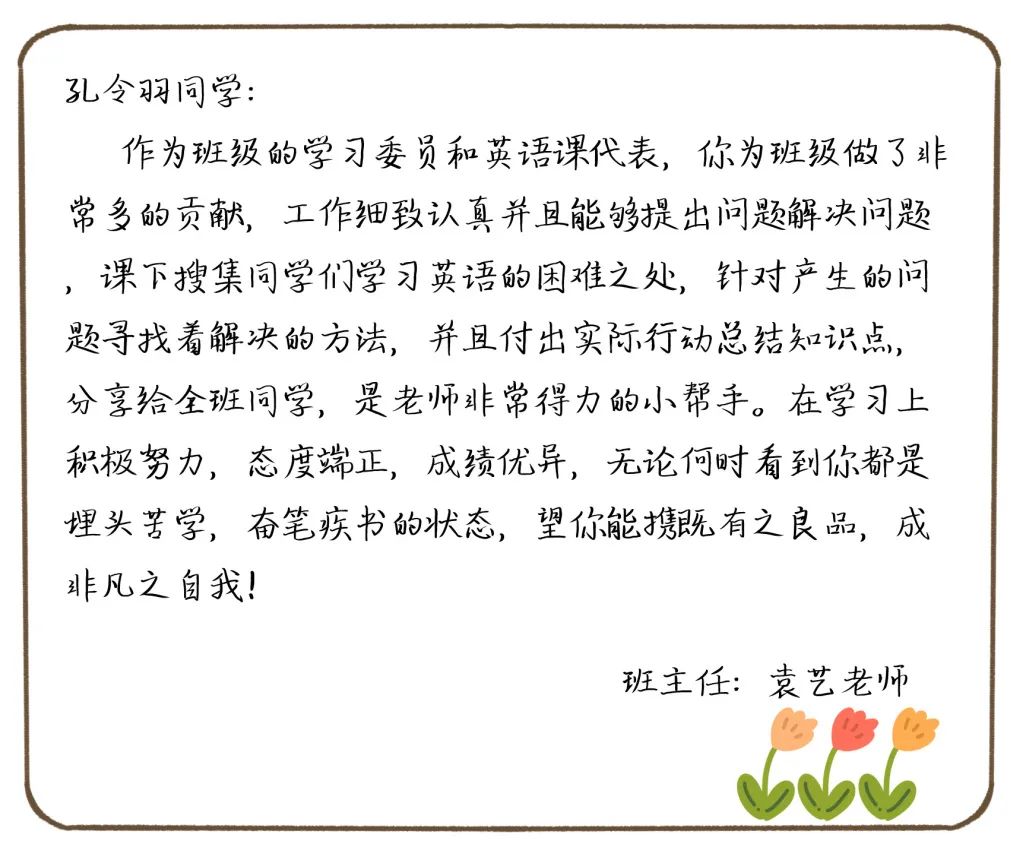 孔令羽同学：
作为班级的学习委员和英语课代表，你为班级做了非
常多的贡献，工作细致认真并且能够提出问题解决问题
，课下搜集同学们学习英语的困难之处，针对产生的问
题寻找着解决的方法，并且付出实际行动总结知识点，
分享给全班同学，是老师非常得力的小帮手。在学习上
积极努力，态度端正，成绩优异，无论何时看到你都是
埋头苦学，奋笔疾书的状态，望你能携既有之良品，成
非凡之自我！
班主任：袁艺老师